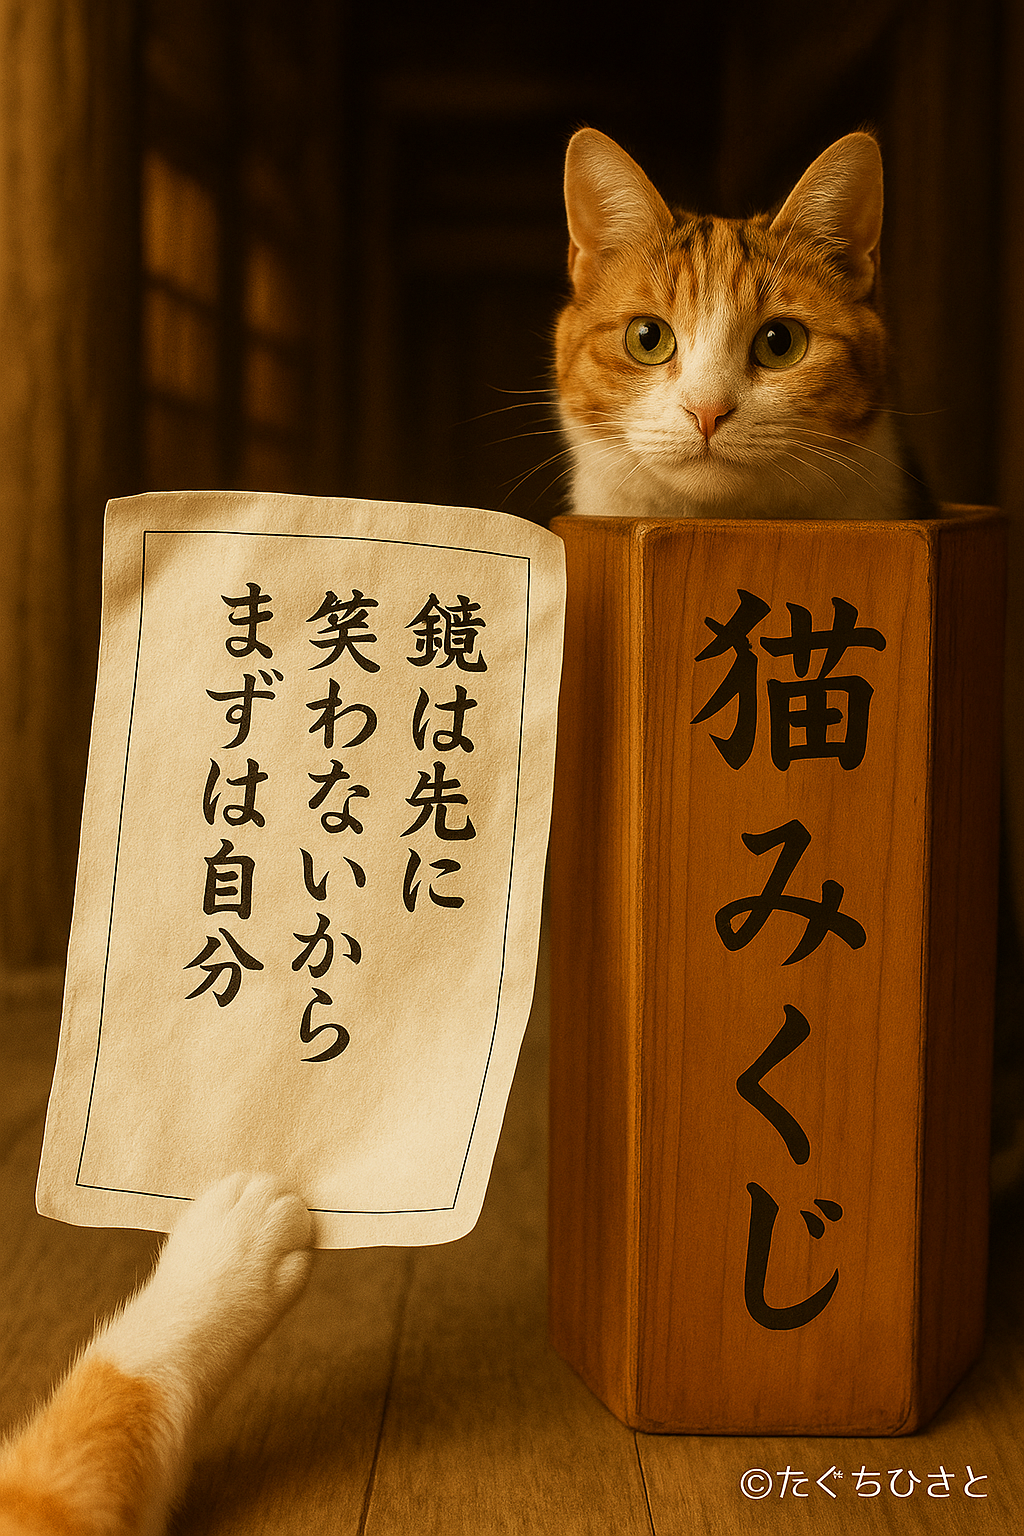 鏡は先に
笑わないから
まずは自分
猫みくじ
©たぐちひさと